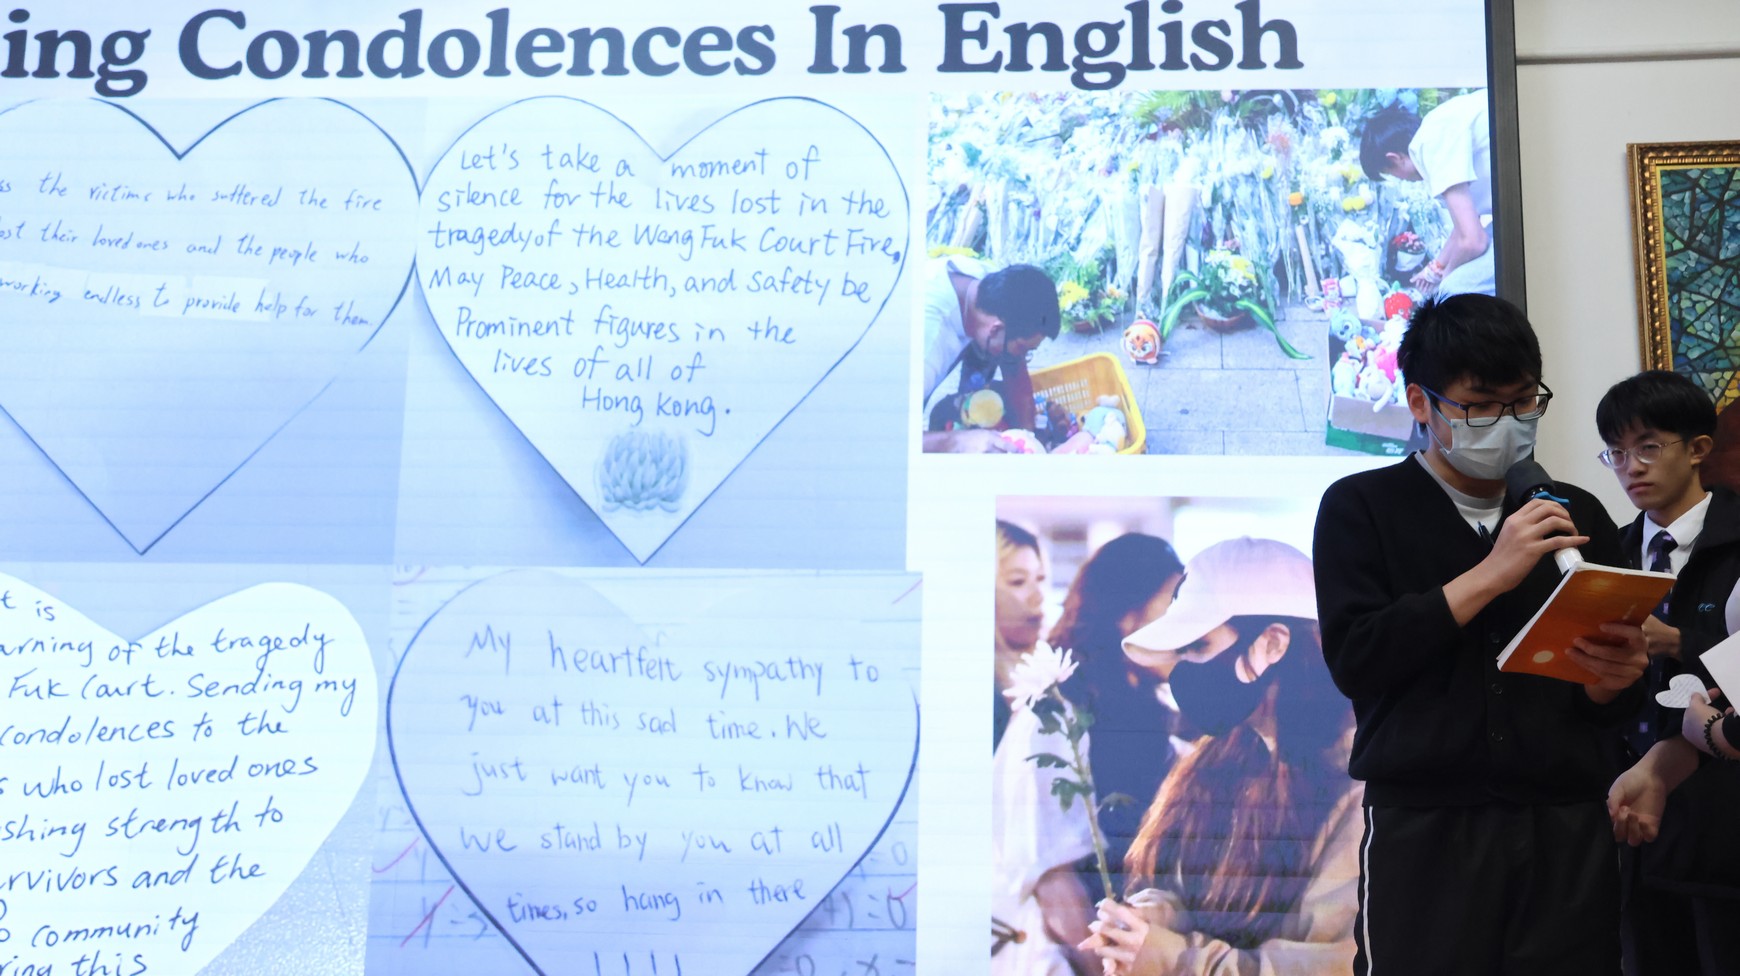 ing Condolences In English
the victims who suffered the fire
lost their loved ones and the people who
working endless to provide help for them.
Let's take a moment of
silence for the lives lost in the
tragedy of the Wang Fuk Court Fire,
May Peace, Health, and Safety be
Prominent figures in the
lives of all of
Hong Kong.
t is
arning of the tragedy
Fuk Court. Sending my
condolences to the
s who lost loved ones
shing strength to
rvivors and the
community
ring this
My heartfelt sympathy to
you at this sad time. We
just want you to know that
we stand by you at all
times, so hang in there
!!!!